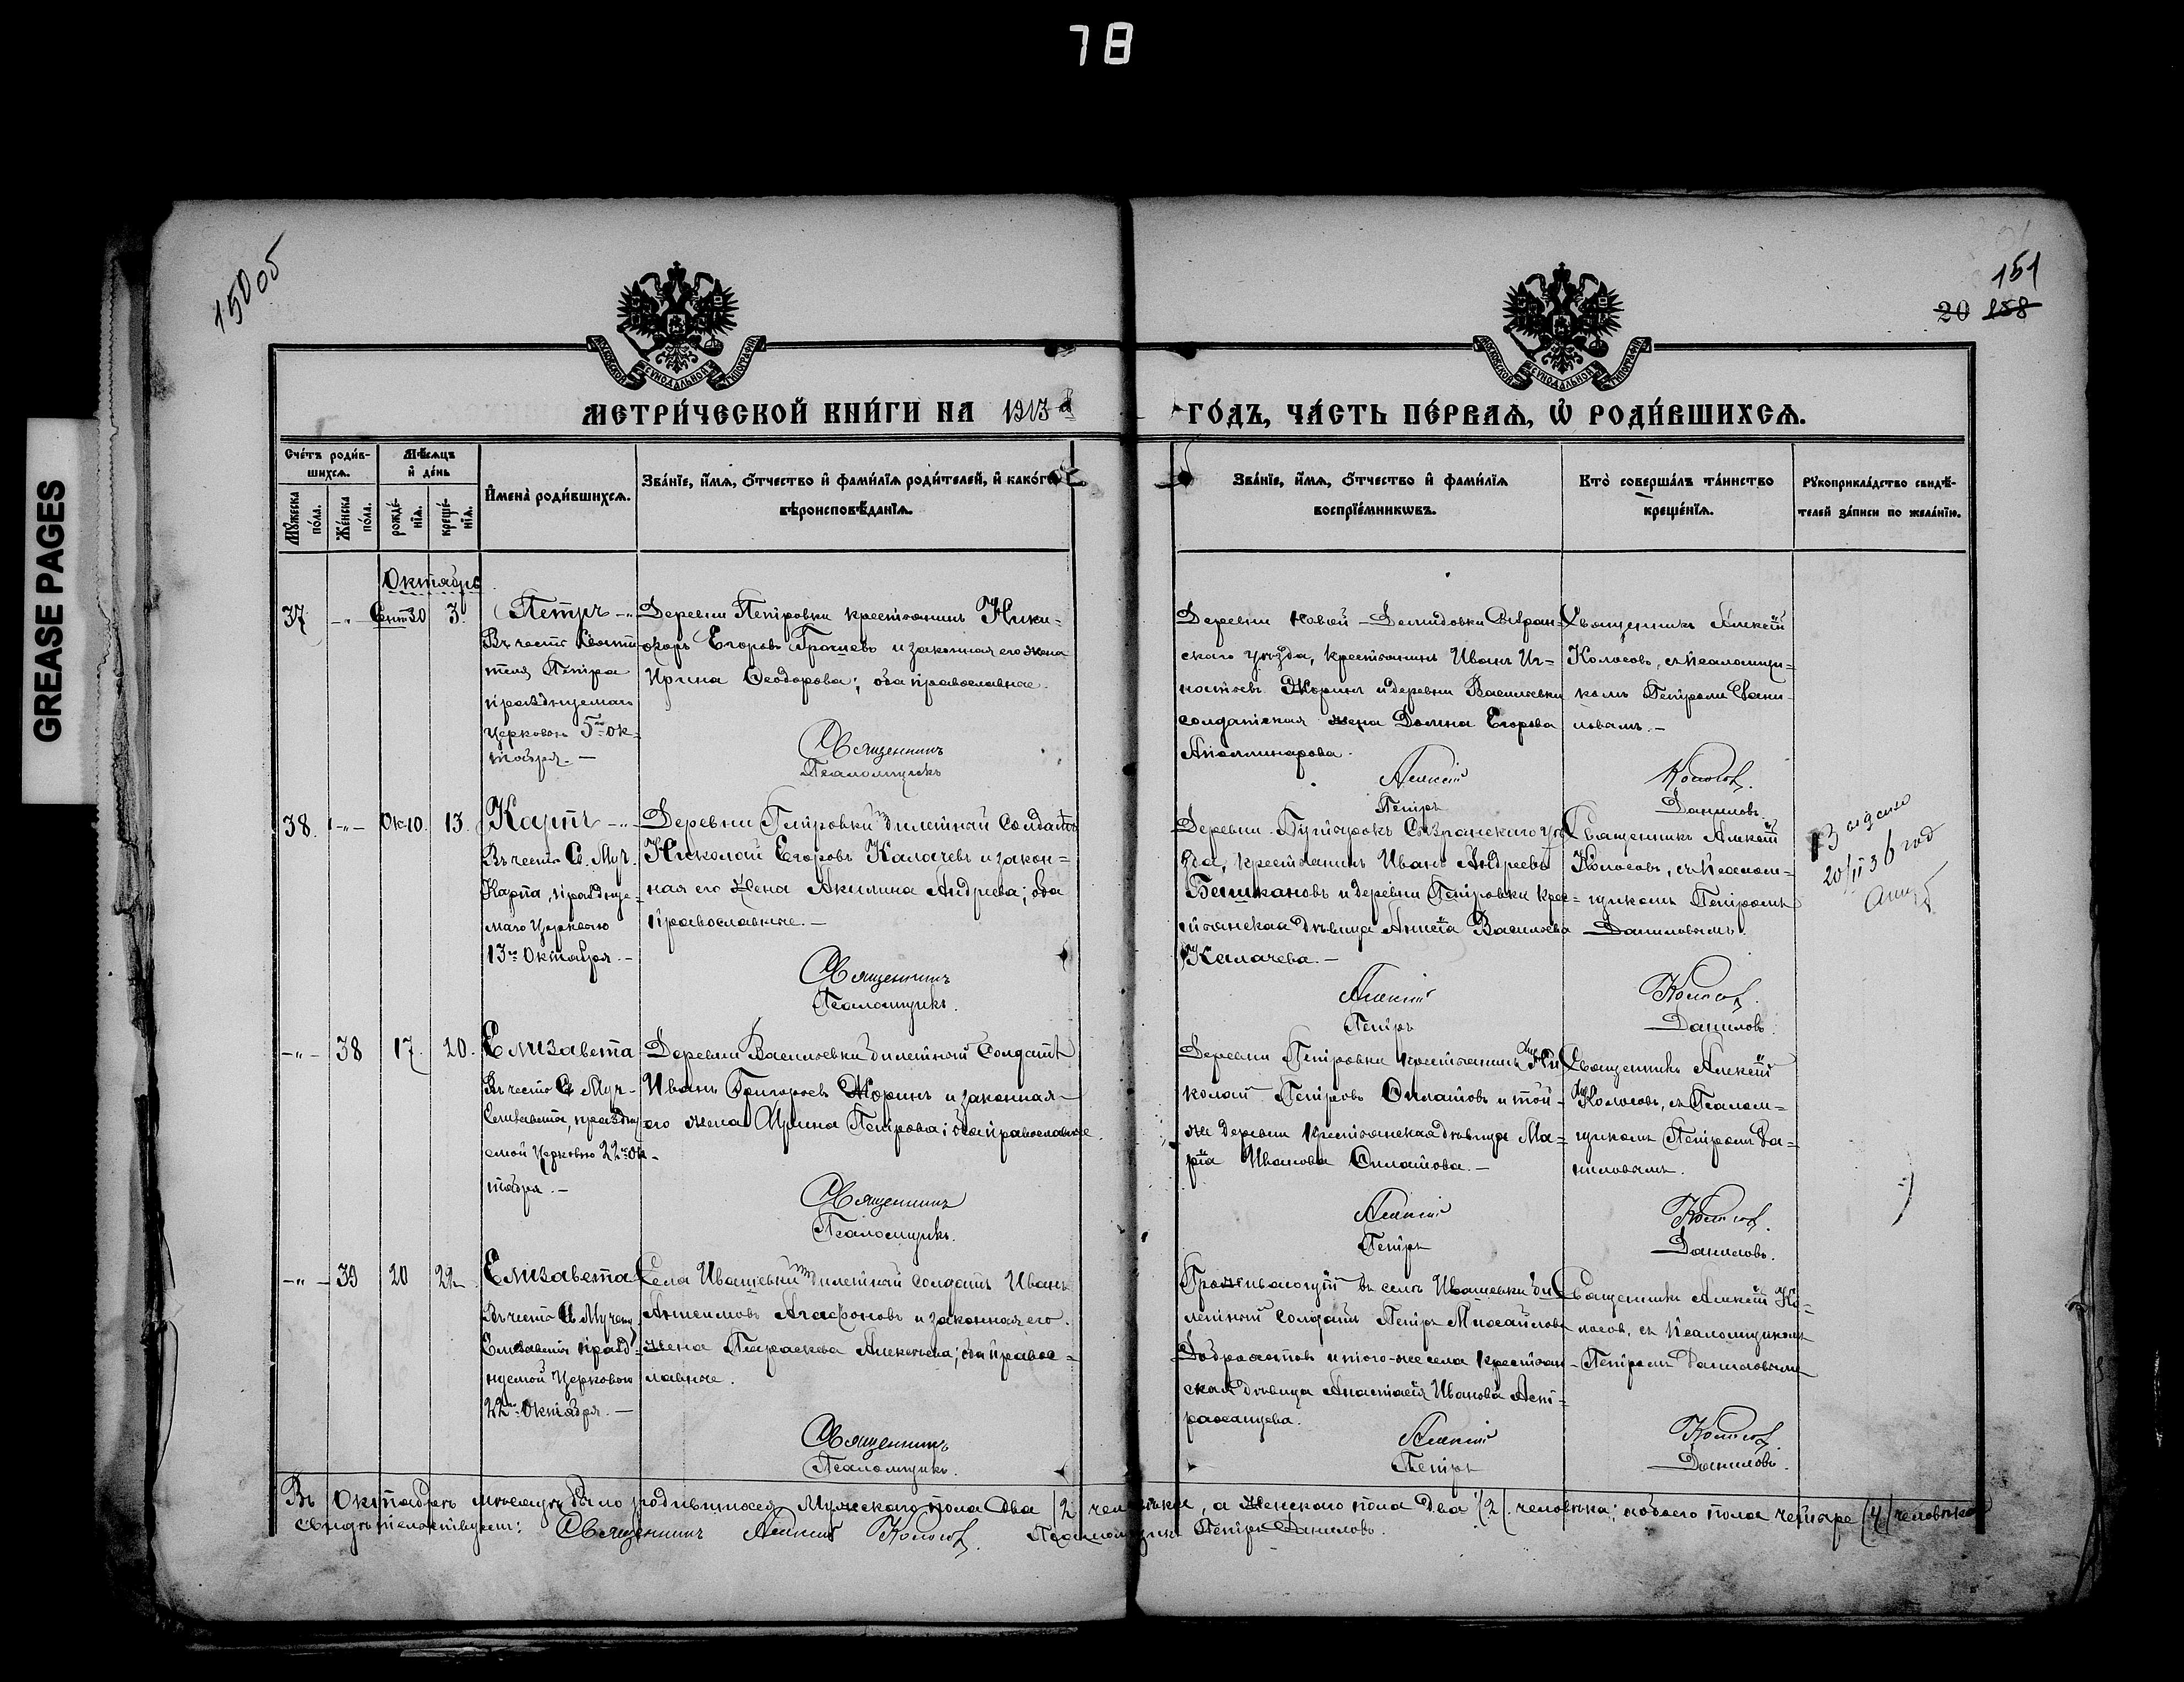 78
GREASE PAGES
150 об
151
20 158
МОСКОВСКОЙ СѴНОДАЛЬНОЙ ТИПОГРАФІИ
МОСКОВСКОЙ СѴНОДАЛЬНОЙ ТИПОГРАФІИ
МЕТРИ́ЧЕСКОЙ КНИ́ГИ НА 1913
ГО́ДЪ, ЧА́СТЬ ПЕ́РВАЯ, Ѡ РОДИ́ВШИХСЯ.
Сче́тъ роди́в-
шихся.
Мѣ́сяцъ
и де́нь
Мꙋ́жеска
по́ла.
Же́нска
по́ла.
рожде́-
нїя.
креще́-
нїя.
Имена̀ роди́вшихся.
Зва́нїе, и́мя, о́тчество и фами́лїя роди́телей, и како́гѡ
вѣроисповѣ́данїя.
Зва́нїе, и́мя, о́тчество и фами́лїя
воспрїе́мникѡвъ.
Кто̀ соверша́лъ та́инство
креще́нїя.
Рꙋкоприкла́дство свидѣ́-
телей за́писи по жела́нїю.
Октябрь
37 -"- Сент 30 3. Петръ -"-
Въ честь Святи-
теля Петра
празднуемаго
Церковью 5го ок-
тября. –
Деревни Петровки крестьянинъ Ники-
форъ Егоровъ Грачевъ и законная его жена
Ирина Ѳеодорова; оба православные.
Священникъ
Псаломщикъ
Деревни Новой-Демидовки Сызран-
скаго уѣзда, крестьянинъ Иванъ Иг-
натьевъ Жоринъ и деревни Васильевки
солдатская жена Домна Егорова
Аполлинарова.
Алексій
Петръ
Священникъ Алексій
Колосовъ, съ псаломщи-
комъ Петромъ Дани-
ловымъ. –
Колосовъ.
Даниловъ.
38. -"- Ок. 10. 13. Карпъ -"-
Въ честь Св. Муч.
Карпа, праздну-
емаго Церковью
13го Октября. –
Деревни Петровки билетный Солдатъ
Николай Егоровъ Калачевъ и закон-
ная его жена Акилина Андреева; оба
православные. –
Священникъ
Псаломщикъ.
Деревни Бутыркъ Сызранскаго уѣз-
да, крестьянинъ Иванъ Андреевъ
Башкановъ и деревни Петровки крес-
тьянская дѣвица Анисія Васильева
Калачева. –
Алексій
Петръ
Священникъ Алексій
Колосовъ, съ Псалом-
щикомъ Петромъ
Даниловымъ.
Колосовъ.
Даниловъ.
20/II 36 год
-"- 38 17. 20. Елизавета
Въ честь Св. Муч.
Елизаветы, праздну-
емой Церковью 22го Ок-
тября. –
Деревни Васильевки билетный Солдатъ
Иванъ Григорьевъ Жоринъ и законная
его жена Ирина Петрова; оба православные.
Священникъ
Псаломщикъ.
Деревни Петровки крестьянинъ Ни-
колай Петровъ Филатовъ и той-
же деревни крестьянская дѣвица Ма-
рія Иванова Филатова. –
Алексій
Петръ
Священникъ Алексій
Колосовъ, съ Псалом-
щикомъ Петромъ Да-
ниловымъ.
Колосовъ.
Даниловъ.
-"- 39 20 22 Елизавета
Въ честь Св. Мучен.
Елизаветы празд-
нуемой Церковью
22го Октября. –
Села Ивашевки билетный солдатъ Иванъ
Анѳимовъ Агафоновъ и законная его
жена Параскева Алексѣева; оба правос-
лавные.
Священникъ
Псаломщикъ.
Проживающій въ селѣ Ивашевки би-
летный солдатъ Петръ Михайловъ
Добронотовъ и того-же села крестьян-
ская дѣвица Анастасія Иванова Аст-
раханцева.
Алексій
Петръ
Священникъ Алексій Ко-
лосовъ, съ Псаломщикомъ
Петромъ Даниловымъ
Колосовъ.
Даниловъ.
Въ Октябрѣ мѣсяцѣ было родившихся Мужескаго пола два (2) человѣка, а женскаго пола два (2) человѣка; обоего пола четыре (4) человѣка
свидѣтельствуют: Священникъ Алексій Колосовъ. Псаломщикъ Петръ Даниловъ.